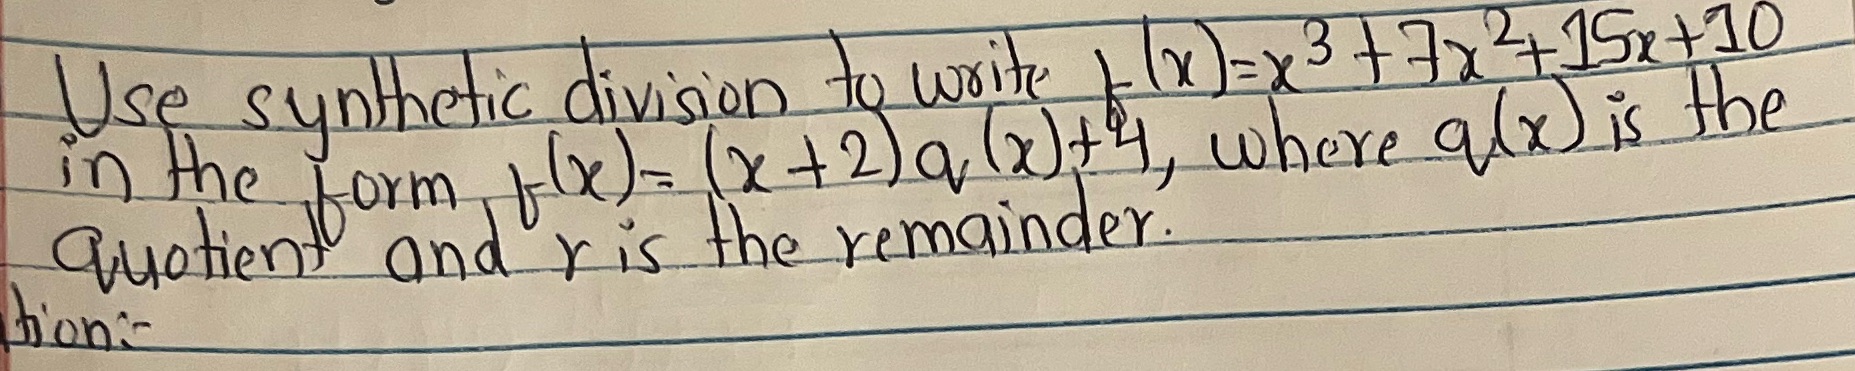 Use synthetic division to write f(x)=x³+7x²+15x+10
in the form f(x)=(x+2)q(x)+4, where q(x) is the
quotient and r is the remainder.
tion:-